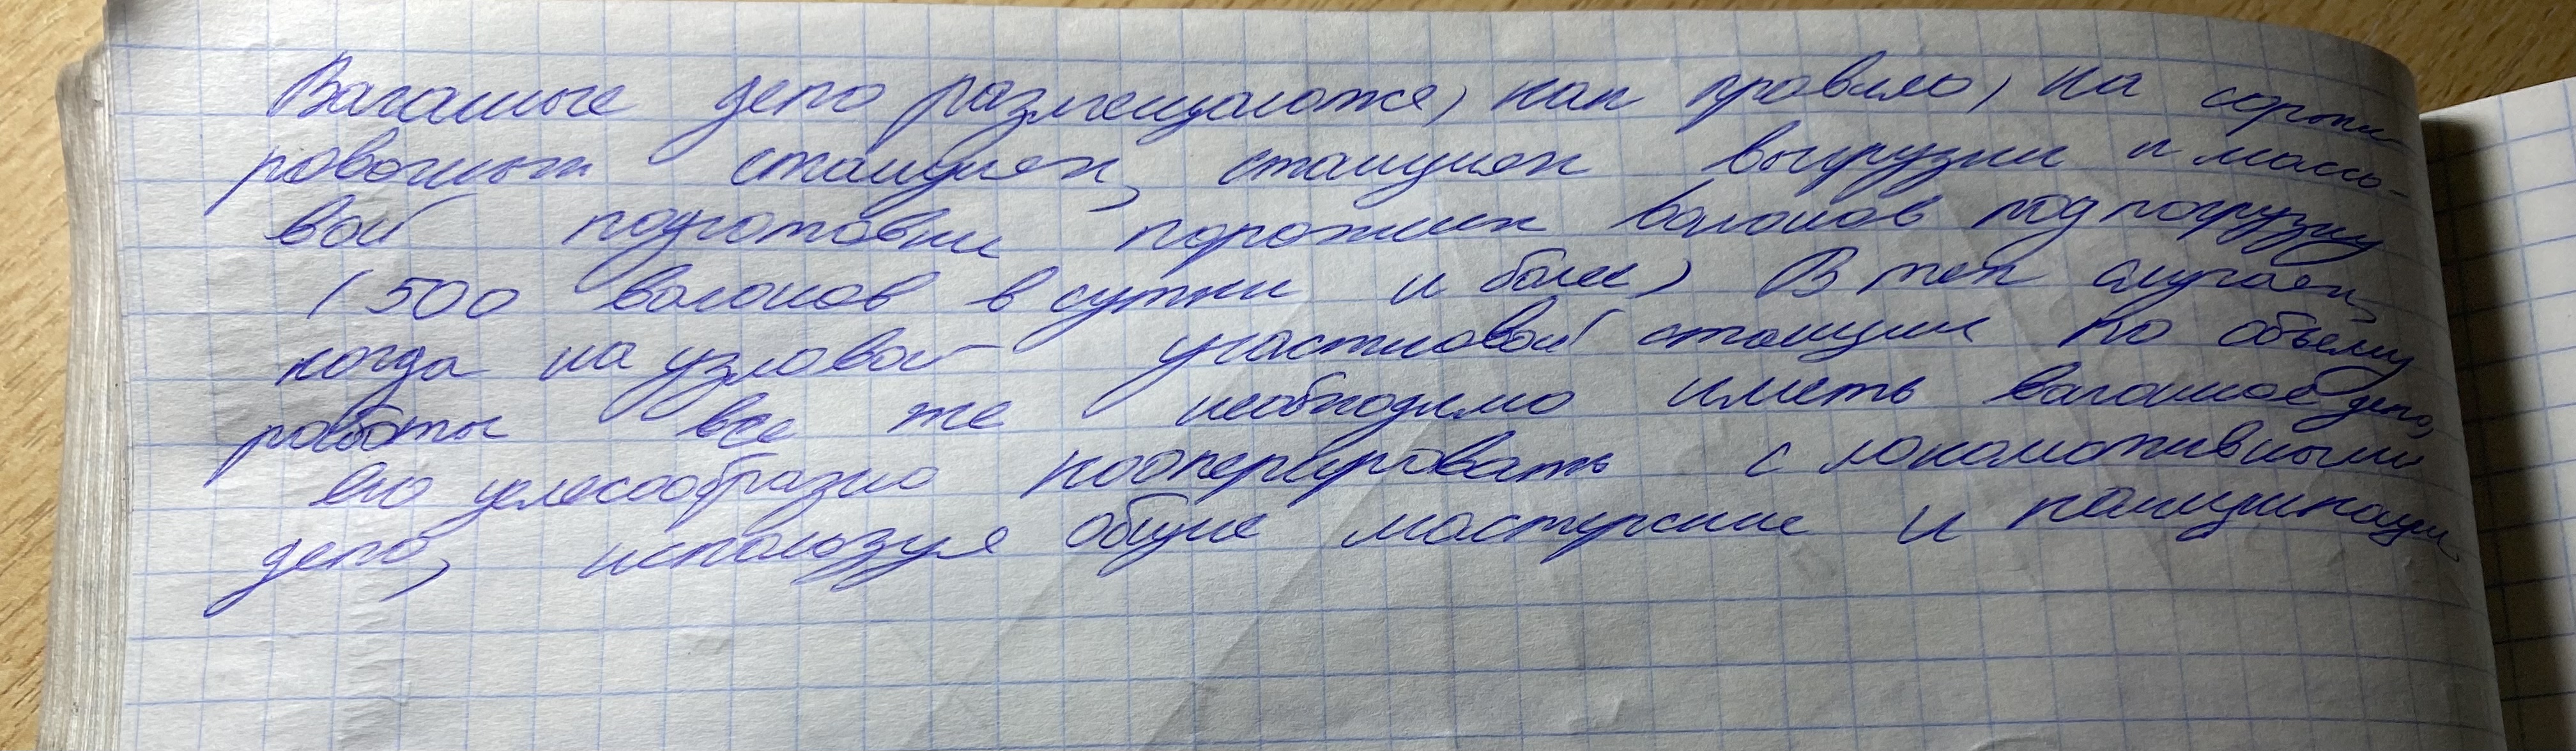 Вагонные депо размещаются, как правило, на сортиро
ровочных станциях, станциях выгрузки и массо-
вой подготовки порожних вагонов под погрузку
(500 вагонов в сутки и более) В тех случаях,
когда на узловой участковой станции по объему
работы все же необходимо иметь вагонное депо,
его целесообразно кооперировать с локомотивными
депо, используя общие мастерские и коммуникации